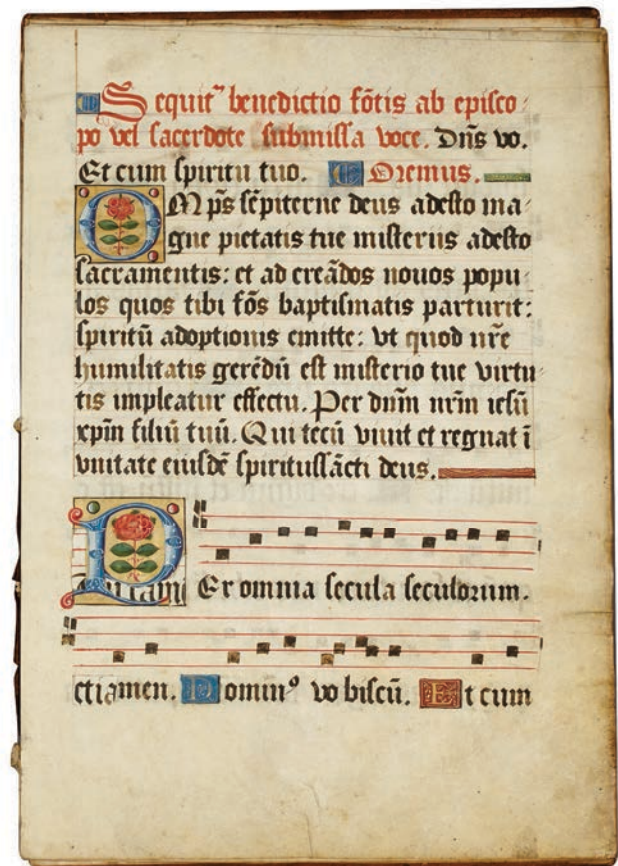 Sequit᷑ benedictio fōtis ab episco
po vel sacerdote submissa voce. Dn̄s vo.
Et cum spiritu tuo. Oremus.
OMp̄s sēpiterne deus adesto ma
gne pietatis tue misteriis adesto
sacramentis: et ad creādos nouos popu
los quos tibi fōs baptismatis parturit:
spiritū adoptionis emitte: vt quod nr̄e
humilitatis gerēdū est misterio tue virtu
tis impleatur effectu. Per dn̄m nr̄m iesū
xp̄m filiū tuū. Qui tecū viuit et regnat ī
vnitate eiusdē spiritussācti deus.
PEr omnia secula seculorum.
amen. Dominꝰ vobiscū. Et cum